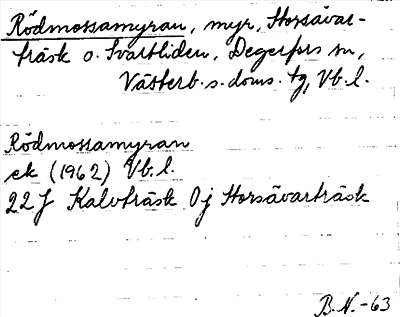 Rödmossamyran, myr, Storsävar-
träsk o. Svartliden, Degerfors sn,
Västerb. s. doms. tg, Vb. l.
Rödmossamyran
ek (1962) Vb. l.
22 J Kalvträsk 0 j Storsävarträsk
B.N. -63